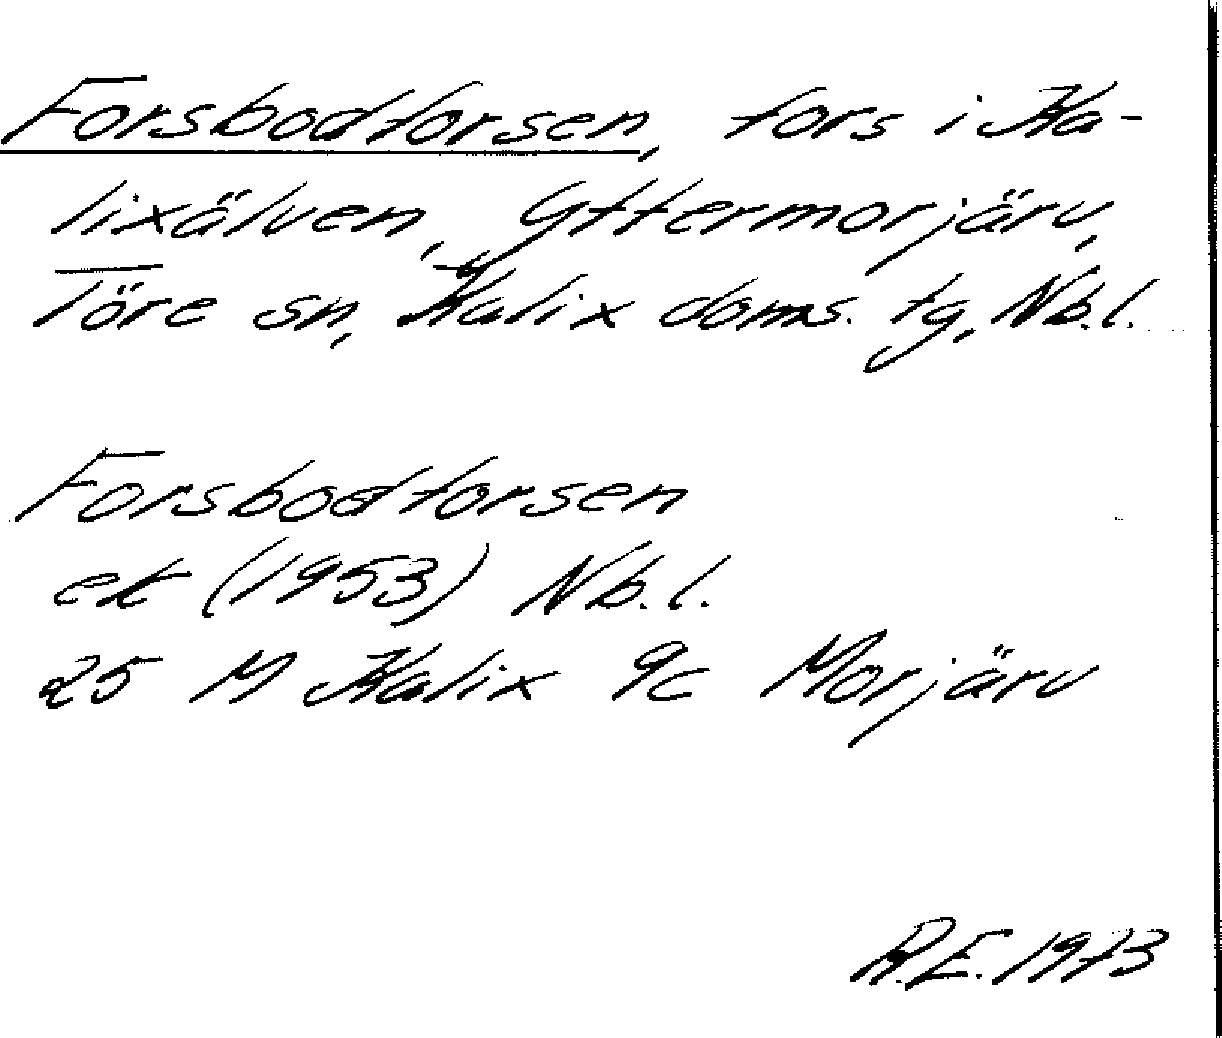 Forsbodforsen, fors i Ka-
lixälven, Yttermorjärv,
Töre sn, Kalix doms. tg, Nb.l.
Forsbodforsen
ek (1953) Nb.l.
25 M Kalix 9c Morjärv
R.E. 1973